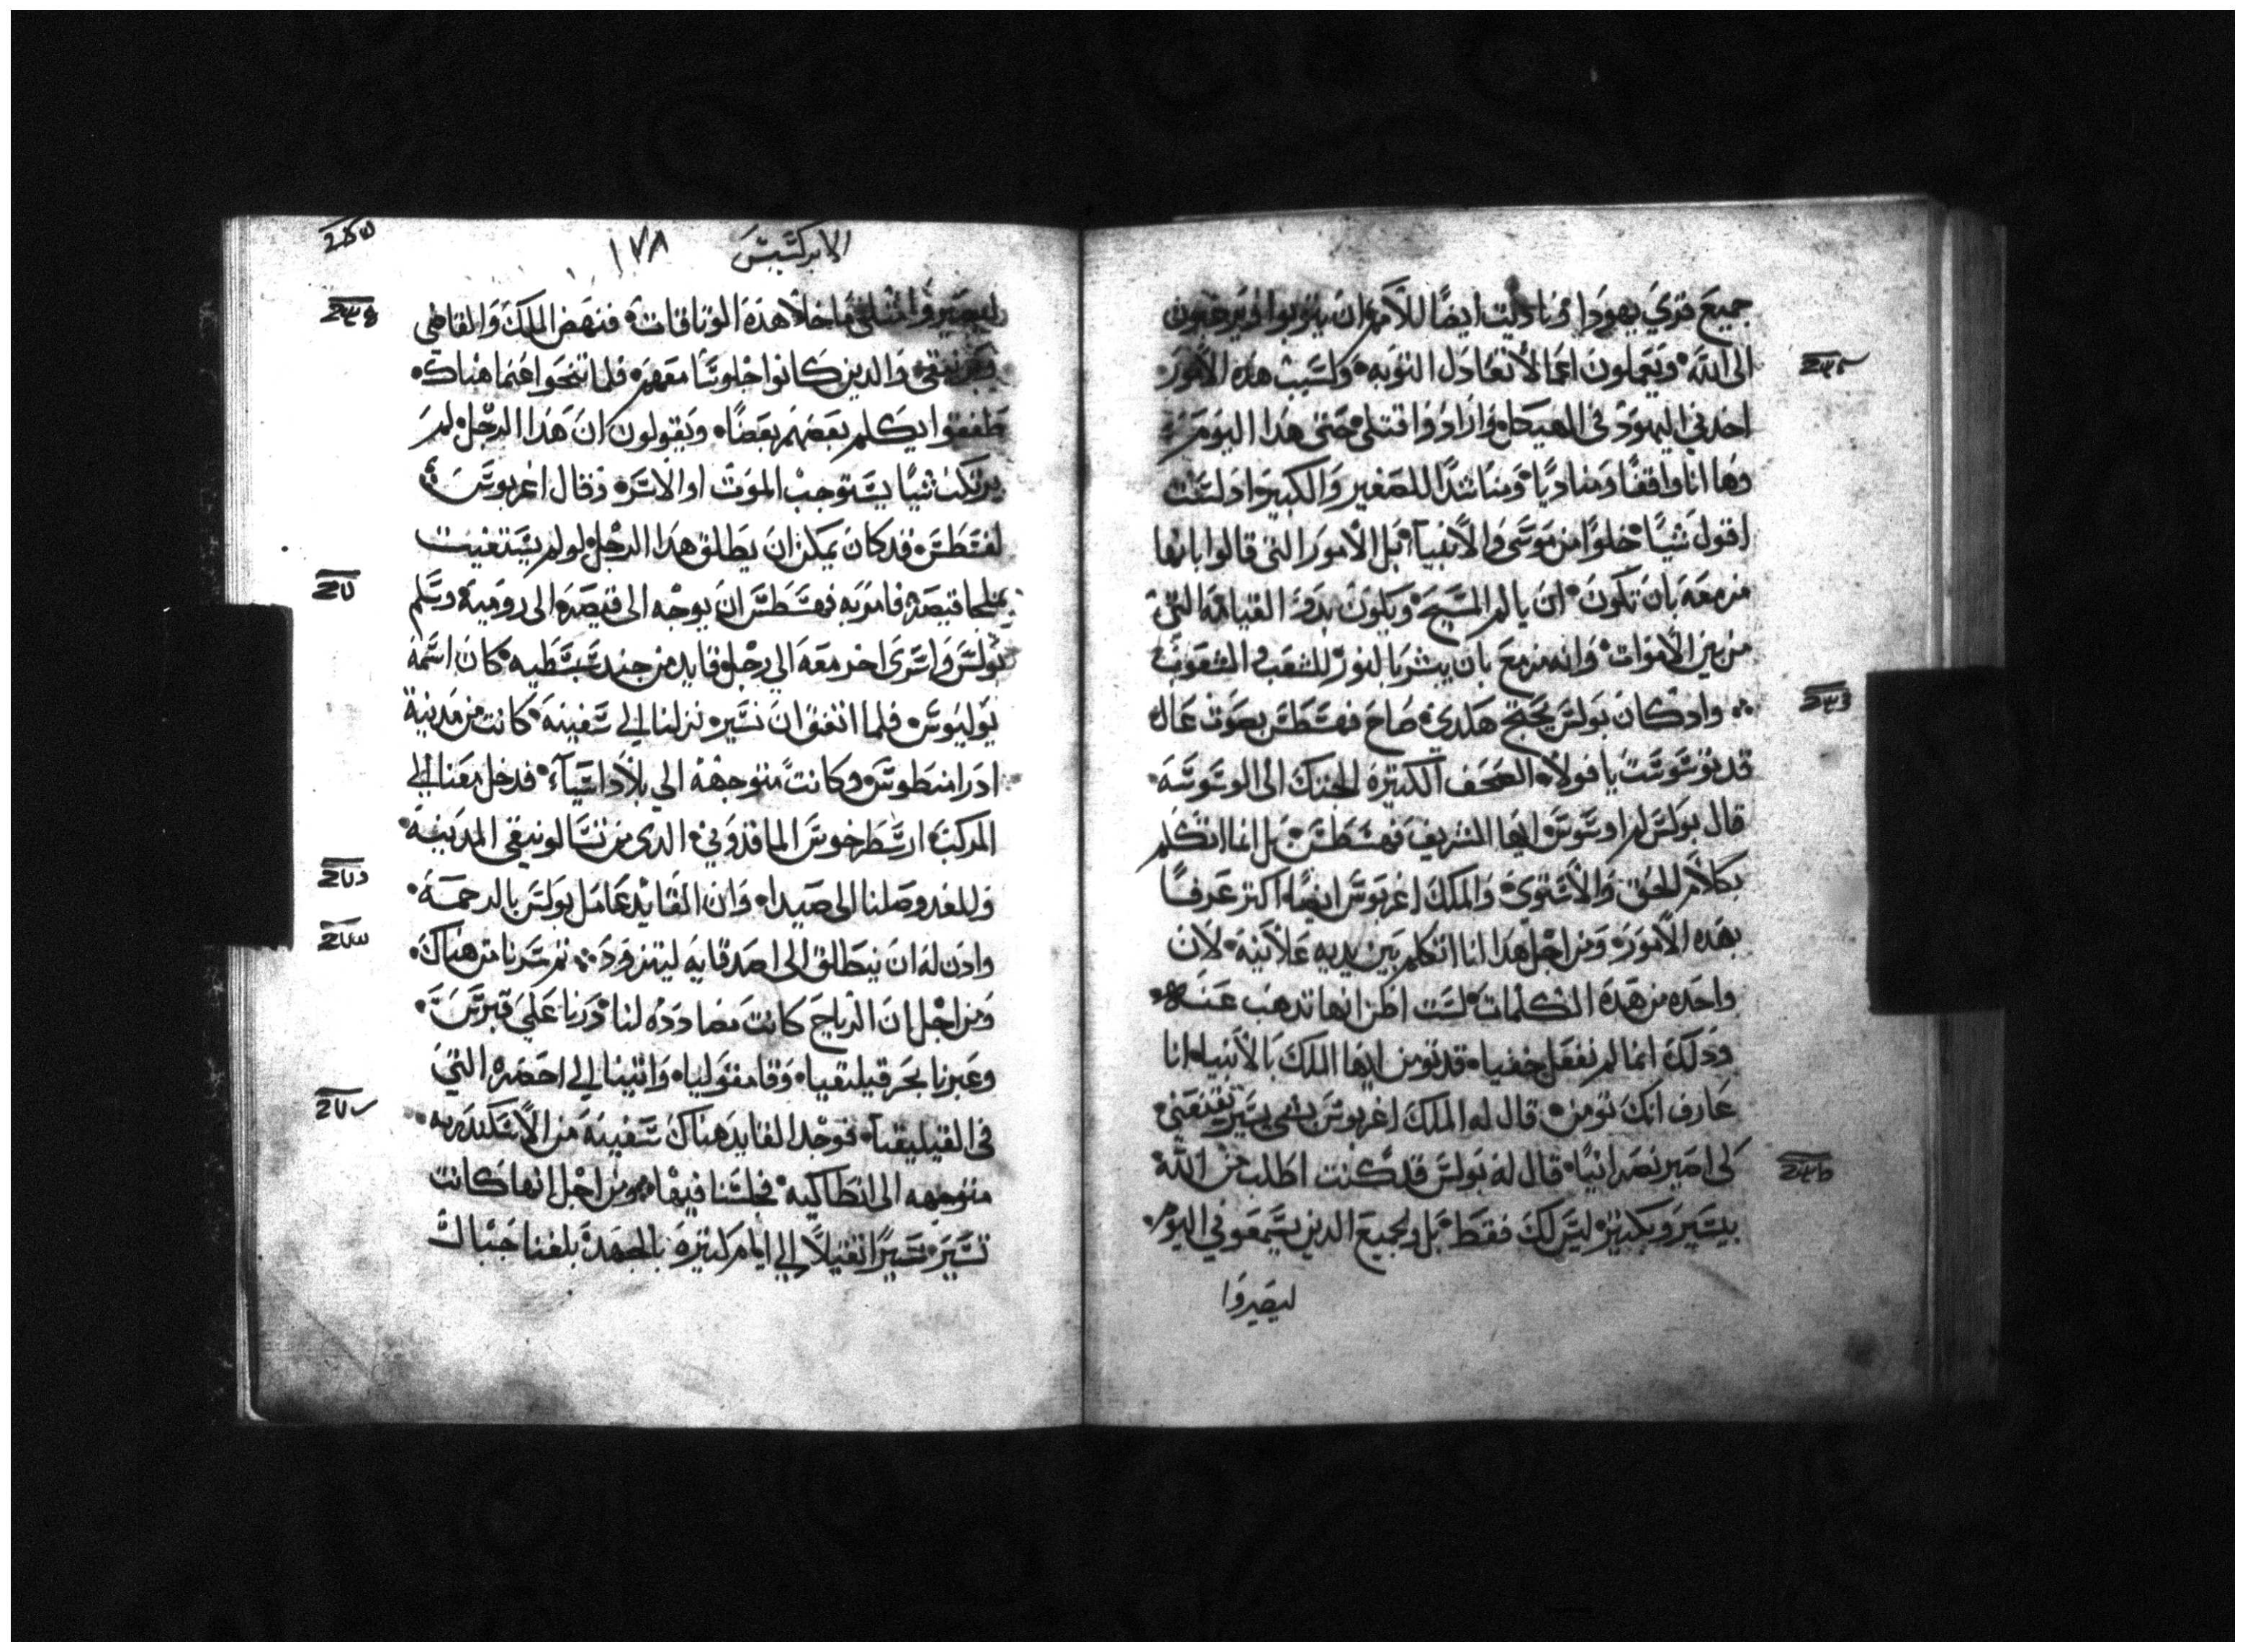 جميع قري يهودا وناديت ايضًا للامم ان يتوبوا ويرجعون
الى الله ويعملون اعمالا تعادل التوبه ولسبب هذه الامور
اخذني اليهود في الهيكل وارادوا قتلى حتى هذا اليوم
وها انا واقفًا ومناديًا ومناشدًا للصغير والكبير اذ لست
اقول شيًا خلوًا من موسى والانبيآ بل الامور التي قالوا بانها
مزمعه بان تكون ان يالم المسيح ويكون بدو القيامه التي
من بين الاموات وانه مزمع بان يبشر بالنور للشعب و الشعوب
واذ كان بولس يحتج هكذي صاح فهسطس بصوت عال
قد توسوست يا فولا الصحف الكتيره الجتك الى الوسوسه
قال بولس لم اوسوس ايها الشريف فهسطس بل انما اتكلم
بكلام للحق والاستوى والملك اغربوس ايضًا اكتر عرفًا
بهذه الامور ومن اجل هذا انا اتكلم بين يديه علانيه لان
واحده من هذه الكلمات لست اظن انها تدهب عنه
وذلك انما لم نفعل خفيا قد تومن ايها الملك بالانبيا انا
عارف انك تومن قال له الملك اغربوس بشى يسير تقنعني
لكى اصير نصرانيًا قال له بولس قد كنت اطلب من الله
بيسير وبكتير ليس لك فقط بل ولجميع الذين يسمعوني اليوم
ليصيروا
الابركسيس ١٧٨
ليصيروا مثلي ما خلا هذه الوثاقات فنهض الملك والقاضي
وبرنيقي والدين كانوا جلوسًا معهم فلما انتحوا عنما هناك
طفقوا يكلم بعضهم بعضًا ويقولون ان هذا الرجل لم
يرتكب شيًا يستوجب الموت او الاسر وقال اغربوس
لفسطس قد كان يمكن ان يطلق هذا الرجل لو لم يستغيت
بملجا قيصر فامر به فهسطس ان يوجه الى قيصر الى روميه وسلم
بولس واسرى اخر معه الي رجل قايد من جند سبسطيه كان اسمه
يوليوس فلما اتفق ان نسير نزلنا الي سفينه كانت من مدينة
ادرامنطوس وكانت متوجهة الي بلاد اسيآء فدخل معنا الي
المركب ارسطرخوس الماقدوني الذى من تسالونيقي المدينه
وللغد وصلنا الى صيدا وان القايد عامل بولس بالرحمه
واذن له ان ينطلق الى اصدقايه ليتزود تم سرنا من هناك
ومن اجل ان الرياح كانت مضادده لنا درنا على قبرس
وعبرنا بحر قيليقيا وفامفوليا واتينا الي احضره التي
في القيليقيآ فوجد القايد هناك سفينه من الاسكندريه
متوجهه الى انطاكيه فجلسنا فيها ومن اجل انها كانت
تسير سيرًا تقيلًا الي ايام كتيره بالجهد بلغنا حبال